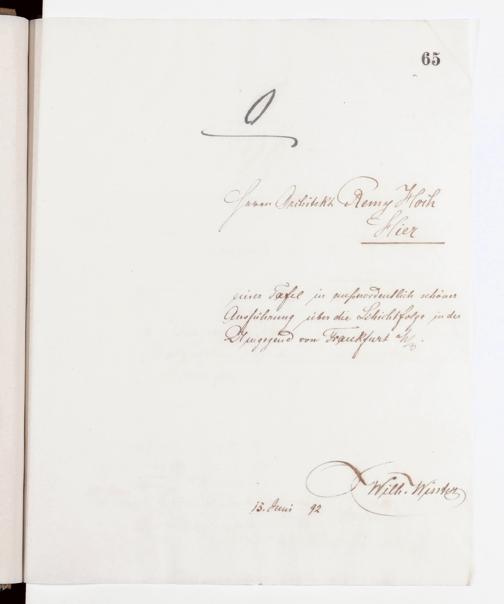 65
Herrn Architekt Remy Hoch
Hier
einer Tafel in außerordentlich schöner
Ausführung über die Schichtfolge in der
Umgegend von Frankfurt a/M.
Wilh. Winter
15. Juni 92